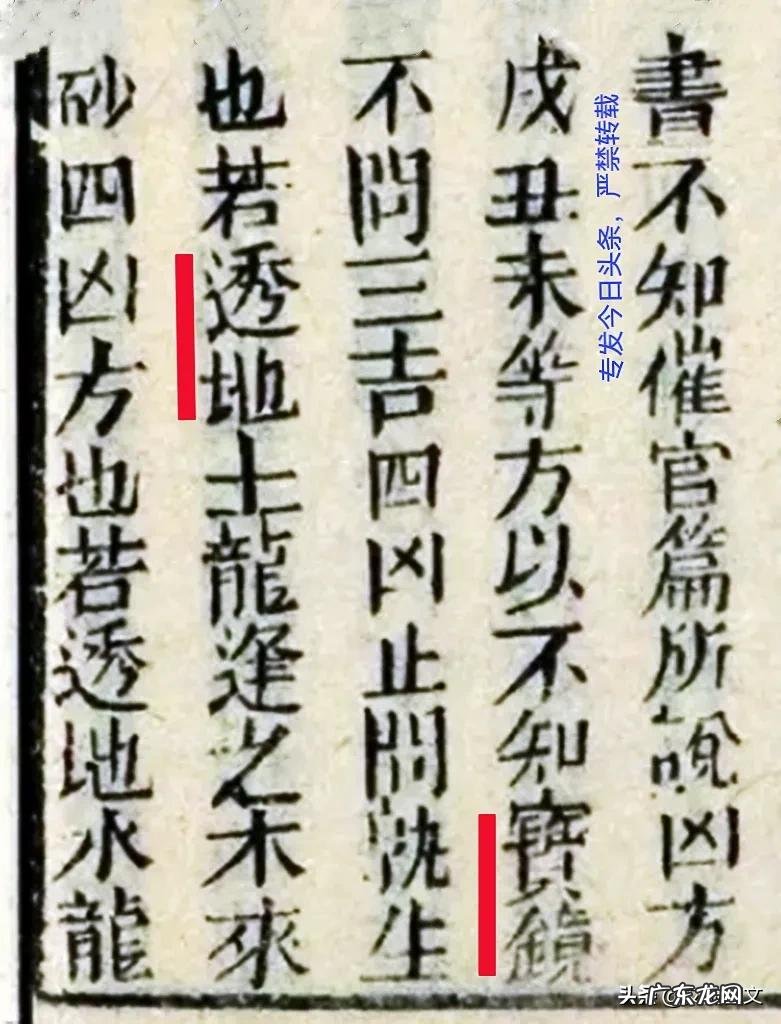 書不知催官篇所說凶方
戌丑未等方以不知寶鏡
不問三吉四凶止問生
也若透地土龍逢之木來
砂四凶方也若透地水龍
专发今日头条，严禁转载
头条 广东龙网文